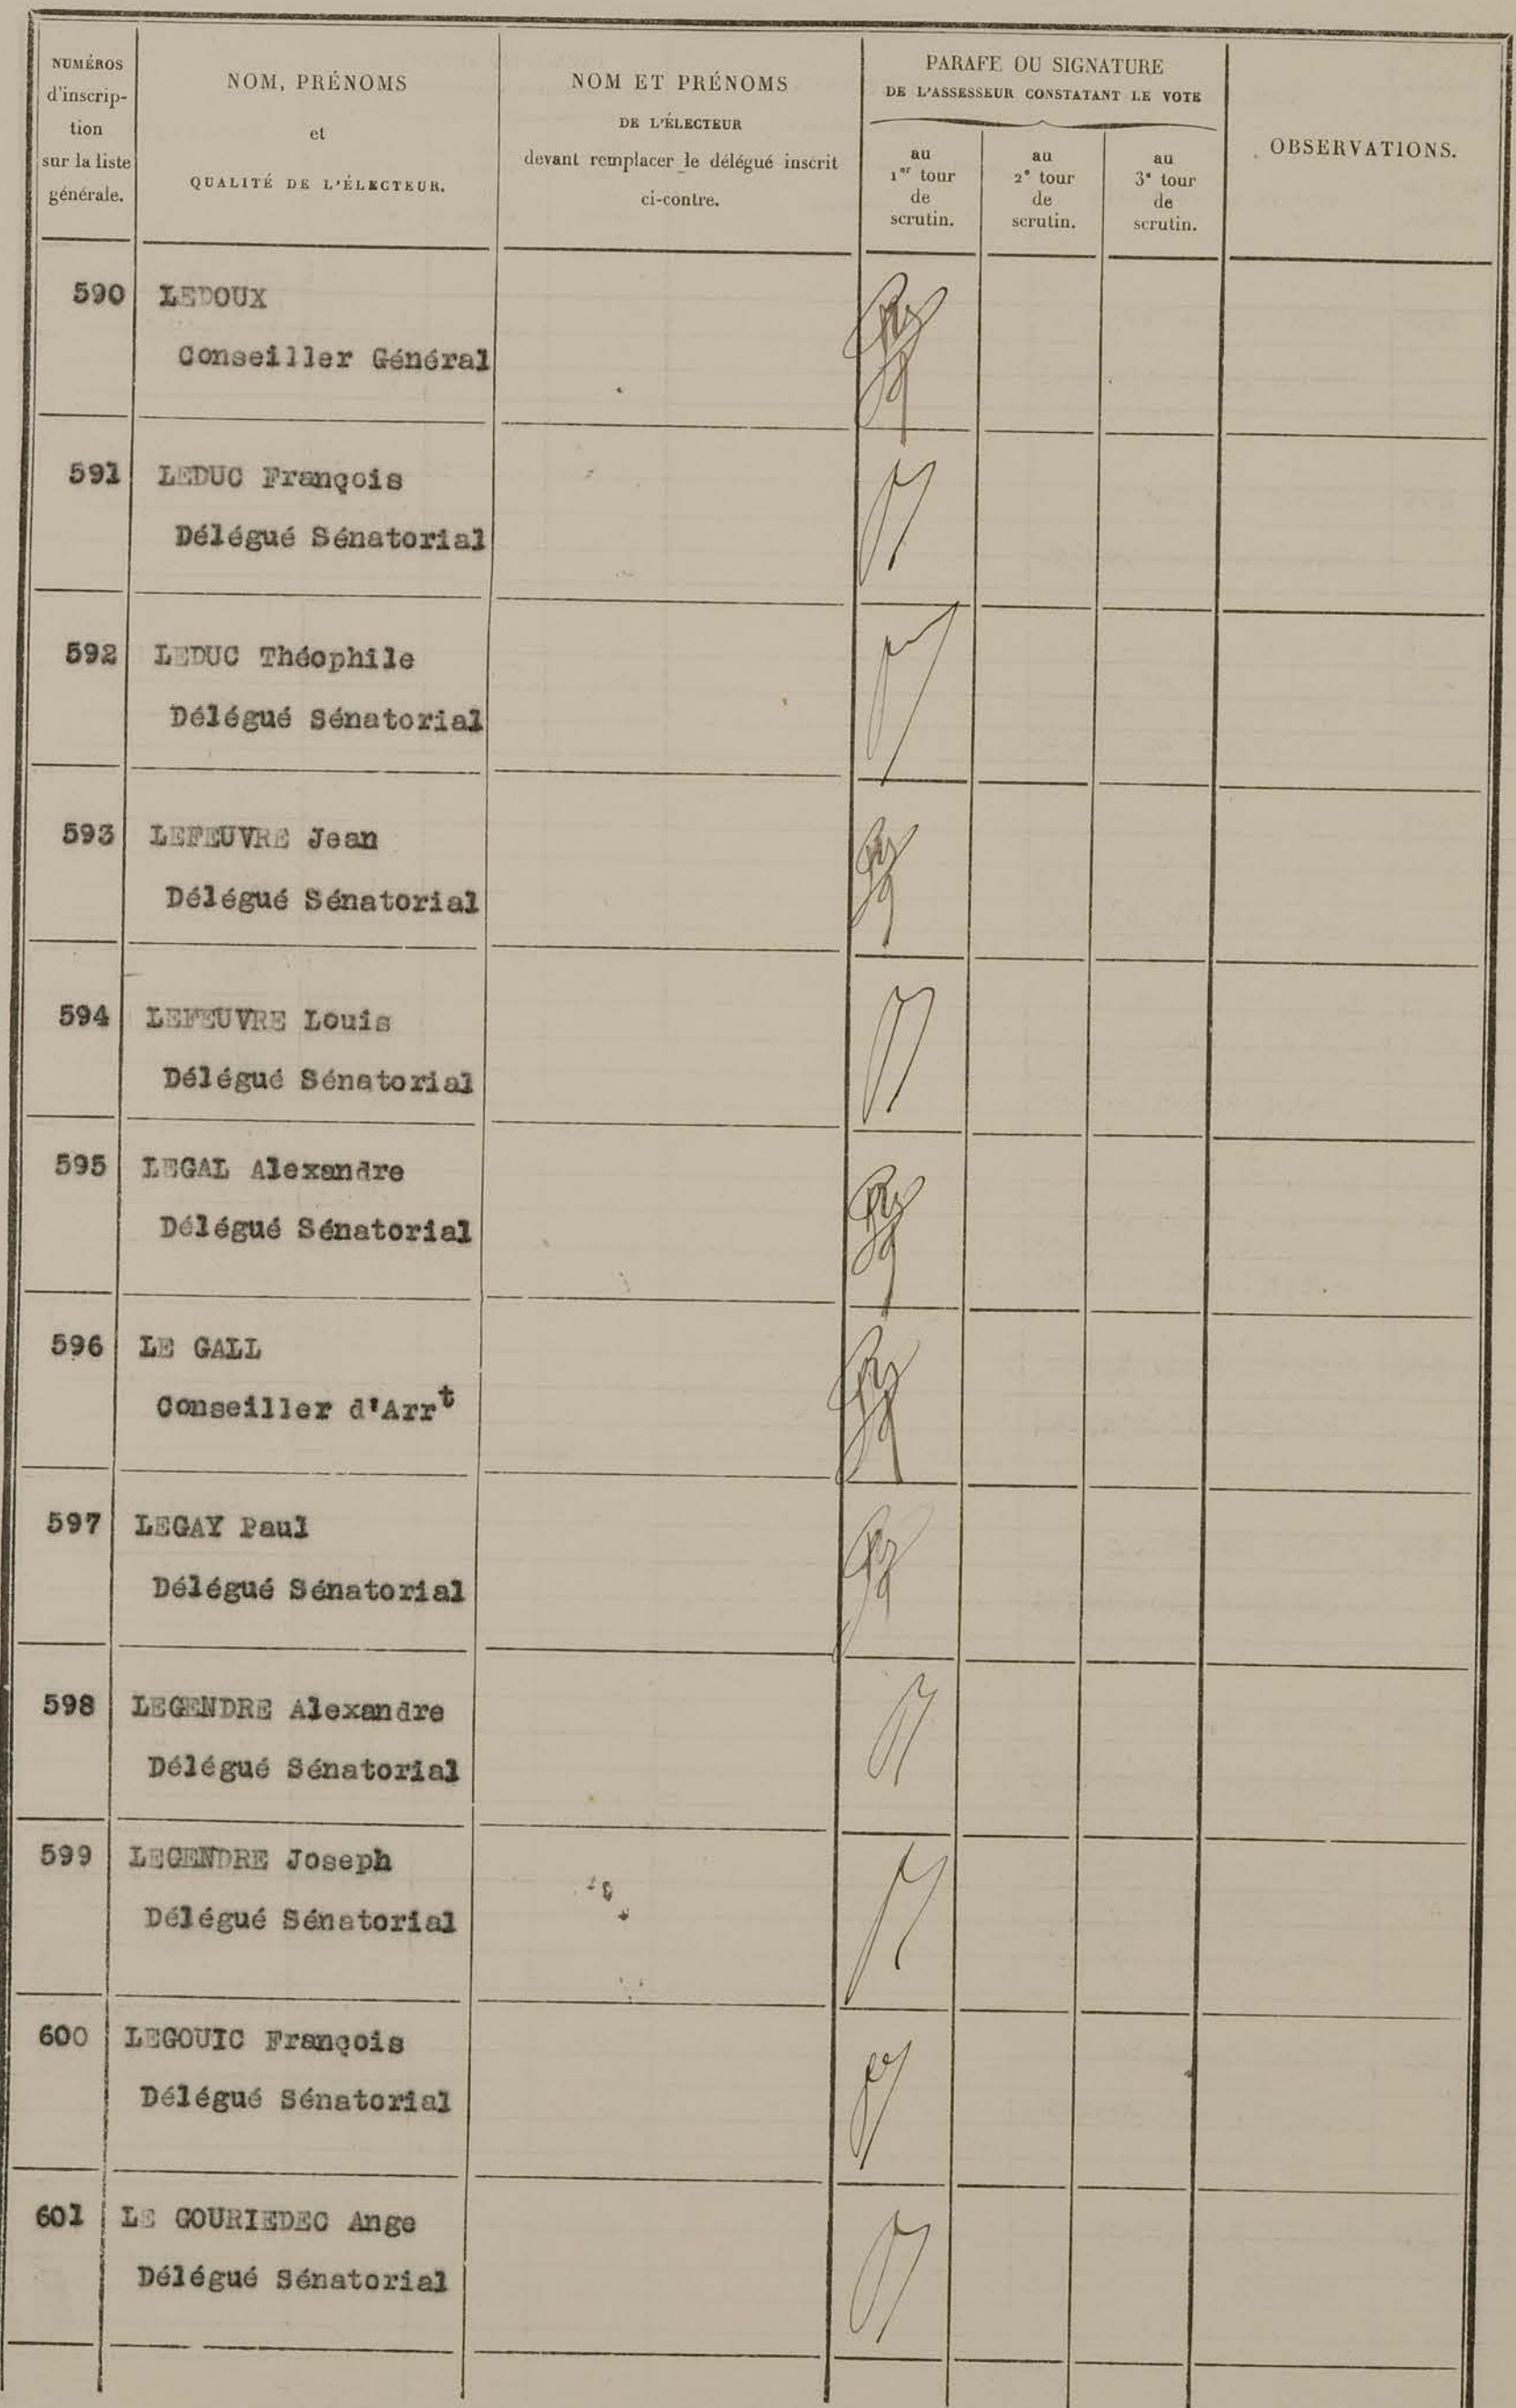 NUMÉROS
d'inscrip-
tion
sur la liste
générale.
NOM, PRÉNOMS
et
QUALITÉ DE L'ÉLECTEUR.
NOM ET PRÉNOMS
DE L'ÉLECTEUR
devant remplacer le délégué inscrit
ci-contre.
PARAFE OU SIGNATURE
DE L'ASSESSEUR CONSTATANT LE VOTE
au
1er tour
de
scrutin.
au
2e tour
de
scrutin.
au
3e tour
de
scrutin.
OBSERVATIONS.
590 LEDOUX
Conseiller Général
591 LEDUC François
Délégué Sénatorial
592 LEDUC Théophile
Délégué Sénatorial
593 LEFEUVRE Jean
Délégué Sénatorial
594 LEFEUVRE Louis
Délégué Sénatorial
595 LEGAL Alexandre
Délégué Sénatorial
596 LE GALL
Conseiller d'Arrt
597 LEGAY Paul
Délégué Sénatorial
598 LEGENDRE Alexandre
Délégué Sénatorial
599 LEGENDRE Joseph
Délégué Sénatorial
600 LEGOUIC François
Délégué Sénatorial
601 LE GOURIEDEC Ange
Délégué Sénatorial